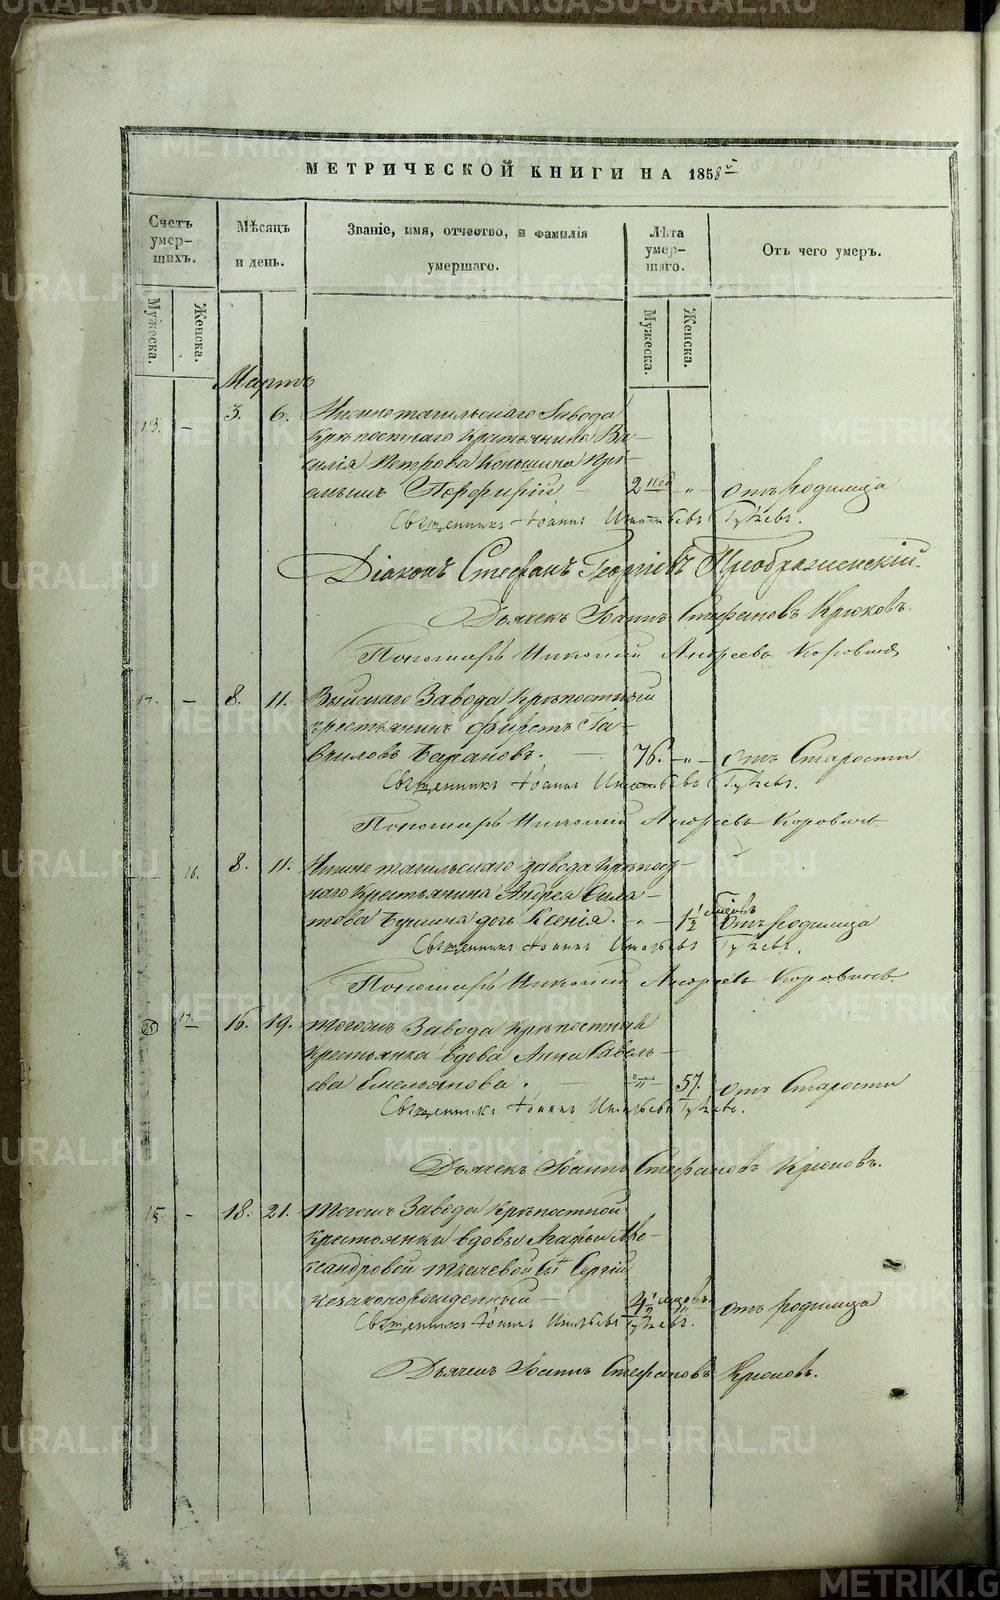 МЕТРИЧЕСКОЙ КНИГИ НА 1858й
Счетъ умер-шихъ.
Мѣсяцъ и день.
Званіе, имя, отчество, и фамилія умершаго.
Лѣта умер-шаго.
Отъ чего умеръ.
Мужеска.
Женска.
Мужеска.
Женска.
Мартъ
13. - 3. 6. Нижнетагильскаго Завода
Крѣпостнаго Крестьянина Ва-
силія Петрова Коньшина
Порфирій - 2 нед - отъ Родимца
Священникъ Іоаннъ Игнатьевъ
Діаконъ Стефанъ Георгіевъ Преображенскій.
Дьячекъ Іоаннъ Стефановъ Крюковъ.
Пономарь Николай Андреевъ Коровинъ
14. - 8. 11. Выйскаго Завода Крѣпостный
крестьянинъ Фирстъ Га-
вриловъ Барановъ. - 76. - отъ Старости
Священникъ Іоаннъ Игнатьевъ
Пономарь Николай Андреевъ Коровинъ
16. 8. 11. Нижнетагильскаго завода Крѣпост-
наго Крестьянина Андрея
дочь Ксенія. - 1 1/2 отъ Родимца
Священникъ Іоаннъ Игнатьевъ
Пономарь Николай Андреевъ Коровинъ
17. 16. 19. Тогожъ Завода Крѣпостная
Крестьянка вдова Анна Савель-
ева Емельянова. - 57. отъ Старости
Священникъ Іоаннъ Игнатьевъ
Дьячекъ Іоаннъ Стефановъ Крюковъ.
15. - 18. 21. Тогожъ Завода Крѣпостной
Крестьянки вдовы Агафьи Але-
ксандровой Ткачевой Сынъ Сергій
незаконорожденный - 4 1/2 отъ Родимца
Священникъ Іоаннъ Игнатьевъ
Дьячекъ Іоаннъ Стефановъ Крюковъ.
METRIKI.GASO-URAL.RU